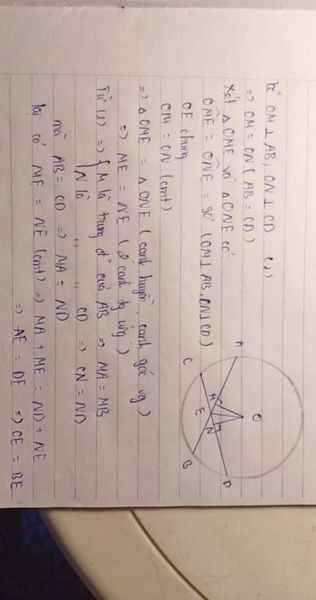 kẻ OM ⊥ AB, ON ⊥ CD (1)
=> OM = ON (AB = CD)
Xét △ OME và △ ONE có
OME = ONE = 90° (OM ⊥ AB, ON ⊥ CD)
OE chung
OM = ON (cmt)
=> △ OME = △ ONE (cạnh huyền, cạnh góc vg)
=> ME = NE (2 cạnh tg ứng)
Từ (1) => { M là trung đ' của AB => MA = MB
N là " " CD => CN = ND
mà AB = CD => MA = ND
lại có ME = NE (cmt) => MA + ME = ND + NE
=> AE = DE => CE = BE
A
C
O
M
E
N
B
D